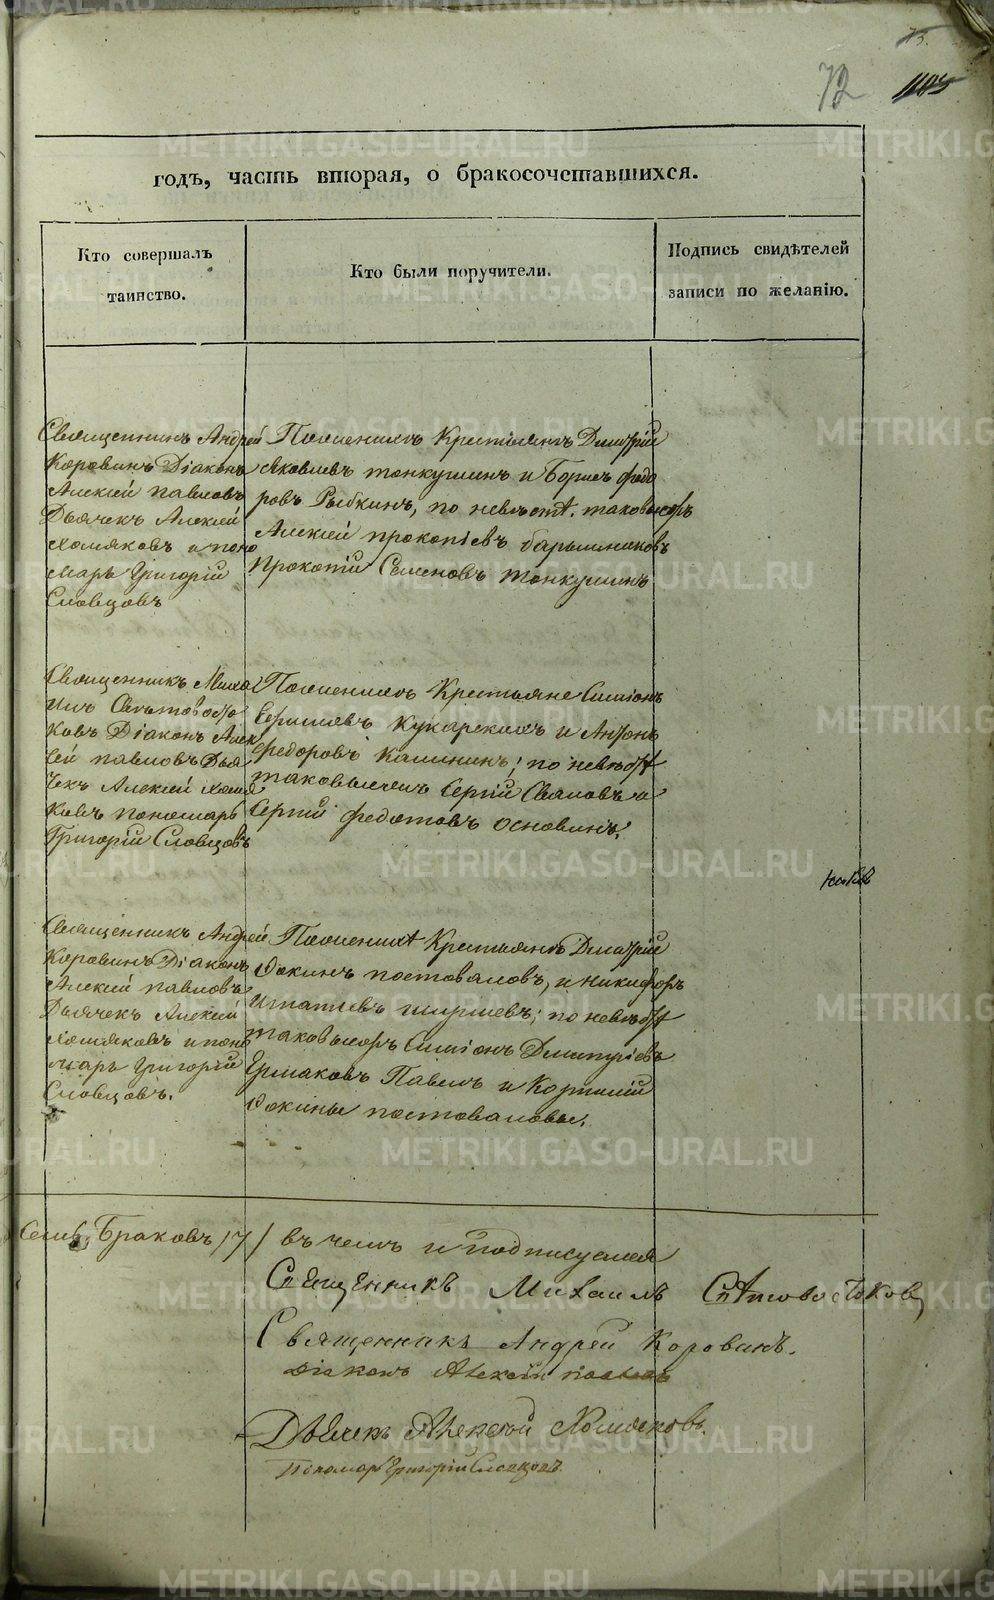 73.
72
1103
годъ, часть вторая, о бракосочетавшихся.
Кто совершалъ
таинство.
Кто были поручители.
Подпись свидѣтелей
записи по желанію.
Священникъ Андрей
Коровинъ Діаконъ
Алексій павловъ
Дьячекъ Алексій
Хомяковъ и поно
марь Григорій
Словцовъ
По женихѣ Крестьянъ Димитрій
Яковлевъ тонкушинъ и Борисъ федо
ровъ Рыбкинъ, по невѣстѣ.
Алексій прокопіевъ барышниковъ
Прокопій Семеновъ тонкушинъ
Священникъ Миха
илъ Святовосто
ковъ Діаконъ Алек
сій павловъ Дья
чекъ Алексій Хомя
ковъ пономарь
Григорій Словцовъ
По женихѣ Крестьяне Симіонъ
Кухарскихъ и Антонъ
федоровъ Калининъ; по невѣстѣ
Сергій Ивановъ и
Сергій федотовъ основинъ;
Священникъ Андрей
Коровинъ Діаконъ
Алексій павловъ
Дьячекъ Алексій
Хомяковъ и поно
марь Григорій
Словцовъ.
По женихѣ Крестьянъ Димитрій
Фокинъ постоваловъ, и никифоръ
Игнатіевъ ширшевъ; по невѣстѣ
Симіонъ Димитріевъ
Ермаковъ Павелъ и
Фокины постоваловы.
Семь Браковъ /7/ въ чемъ и подписуемся
Священникъ Михаилъ Святовостоковъ
Священникъ Андрей Коровинъ.
Діаконъ Алексій павловъ
Дьячекъ Алексѣй Хомяковъ.
Пономарь Григорій Словцовъ.
METRIKI.GASO-URAL.RU